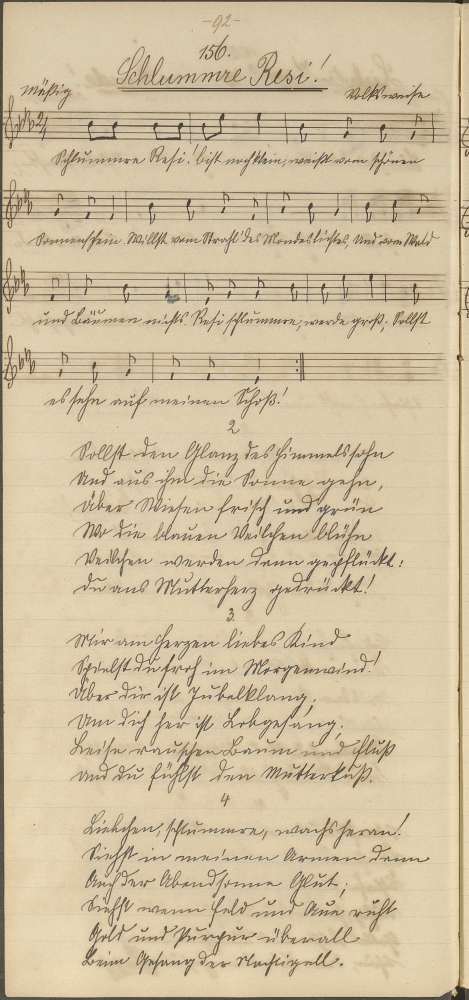 -92-
156.
Schlummre Resi!
Mäßig Volksweise
Schlummre Resi! bist noch klein, weißt vom schönen
Sonnenschein. Willst vom Strahl des Mondeslichtes, Und vom Wald
und Bäumen nichts. Resi schlummre, werde groß; Sollst
es sehn auf meinem Schoß!
2
Sollst den Glanz des Himmels sehn
Und aus ihm die Sonne gehn,
Über Wiesen frisch und grün
Wo die blauen Veilchen blühn
Veilchen werden dann gepflückt:
Du ans Mutterherz gedrückt!
3.
Mir am Herzen liebes Kind
Spielst du froh im Morgenwind!
Über dir ist Jubelklang,
Um dich her ist Lobgesang,
Leise rauschen Baum und Fluß
und du fühlst den Mutterkuß.
4
Liebchen, schlummre, wachs heran!
Siehst in meinen Armen dann
Auf der Abendsonne Glut;
Siehst wenn Feld und Aue ruht
Gold und Purpur überall
Beim Gesang der Nachtigall.